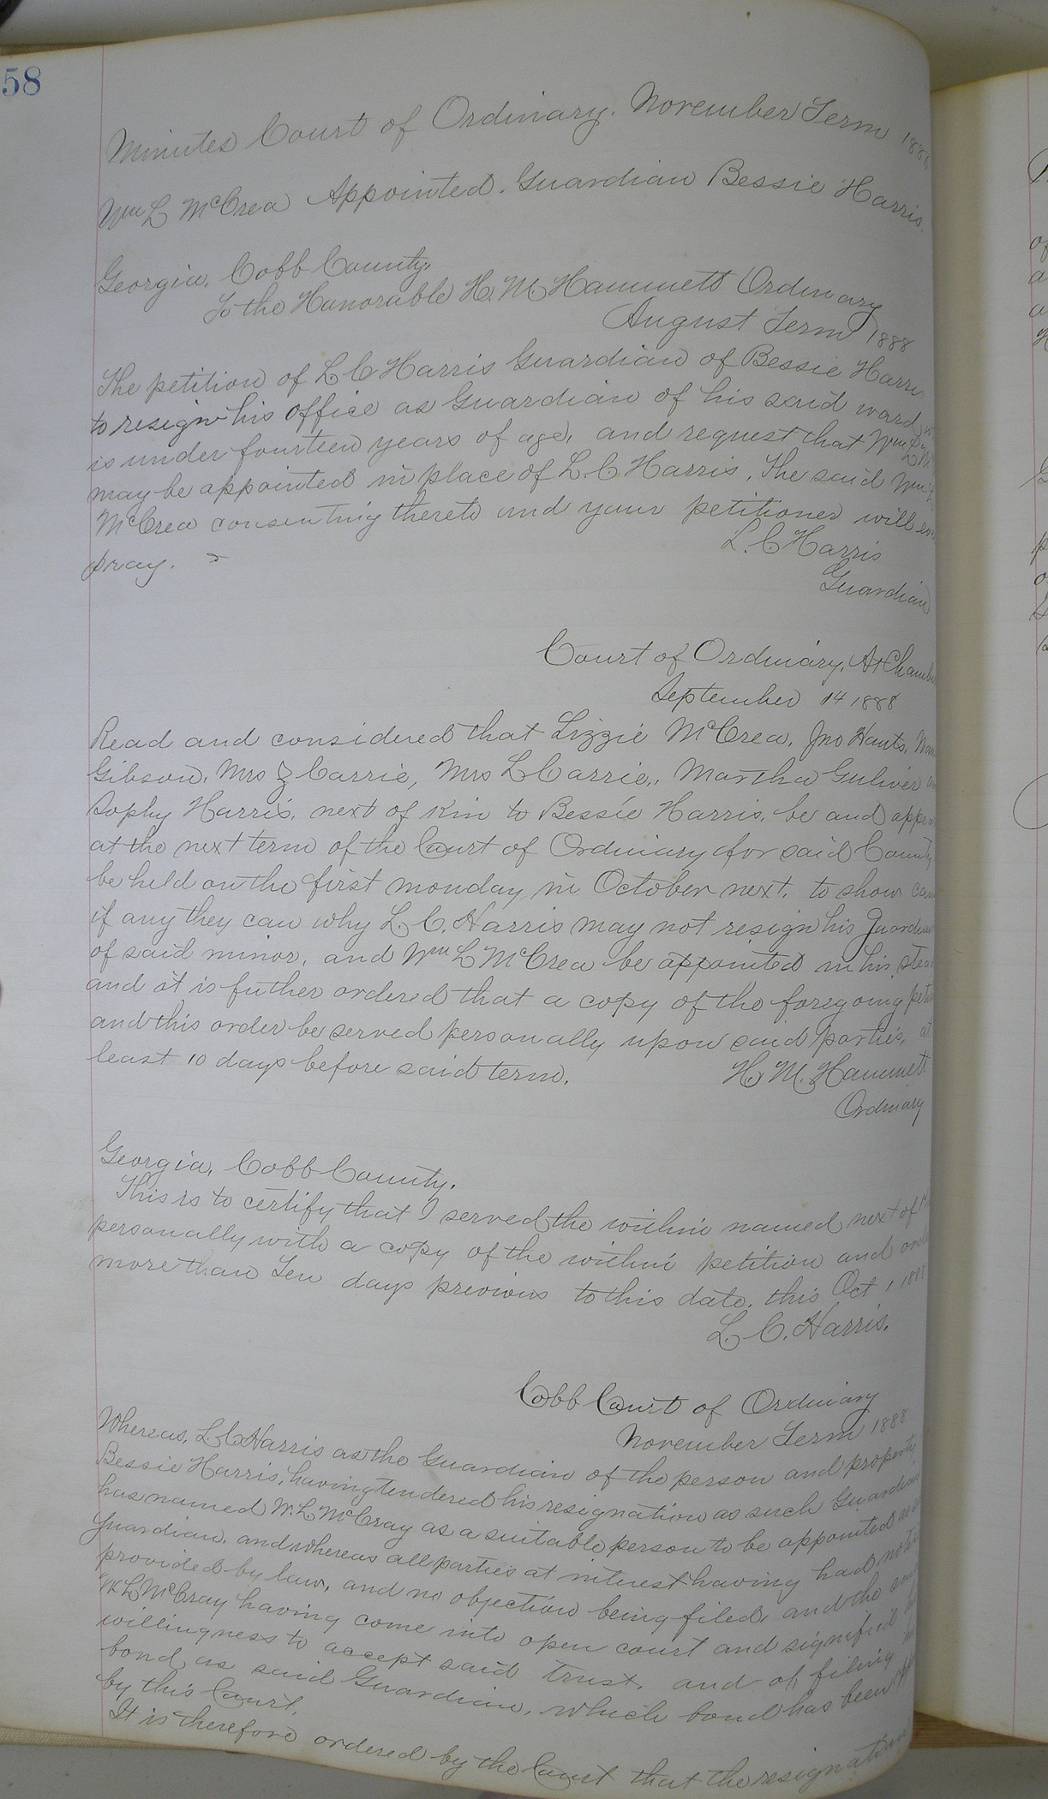 58
Minutes Court of Ordinary. November Term 188
Wm L McCrea Appointed. Guardian Bessie Harris.
Georgia, Cobb County.
To the Hunorable H. M. Hammett Ordinary
August Term 1888
The petition of L C Harris Guardian of Bessie Harri
to resign his office as Guardian of his said ward
is under fourteen years of age, and request that Wm L
may be appointed in place of L. C Harris. The said Wm
McCrea consenting thereto and your petitioner will
pray.
L. C Harris
Guardian
Court of Ordinary, At Chamb
September 14 1888
Read and considered that Lizzie McCrea, Jno Hauts,
Gibson, Mrs Z Carrie, Mrs L Carrie,, Martha Guliver
Sophy Harris, next of Kin to Bessie Harris, be and appe
at the next term of the Court of Ordinary for said County
be held on the first monday in October next, to show
if any they can why L. C. Harris may not resign his Guardian
of said minor, and Wm L McCrea be appointed in his stea
and it is futher ordered that a copy of the foregoing peti
and this order be served personally upon said parties, at
least 10 days before said term.
H. M. Hammett
Ordinary
Georgia, Cobb County.
This is to certify that I served the within named next of
personally with a copy of the within petition and ord
more than Ten days previous to this date, this Oct 1 188
L. C. Harris.
Cobb Court of Ordinary
November Term 1888
Whereas, L C Harris as the Guardian of the person and property
Bessie Harris, having tendered his resignation as such Guardian
has named W. L McCray as a suitable person to be appointed
Guardian, and whereas all parties at interest having had noti
provided by law, and no objection being filed, and the
W L McCray having come into open court and signified
willingness to accept said trust, and of filing
bond as said Guardian, which bond has been
by this Court.
It is therefore ordered by the Court that the resignation